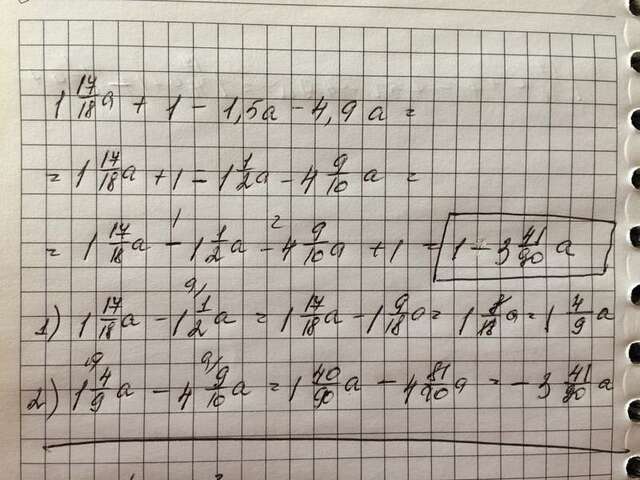 1 17/18 a + 1 - 1,5a - 4,9a =
= 1 17/18 a + 1 - 1 1/2 a - 4 9/10 a =
= 1 17/18 a -¹ 1 1/2 a -² 4 9/10 a + 1 = 1 - 3 41/90 a
1) 1 17/18 a - 1 1/2⁹⁾ a = 1 17/18 a - 1 9/18 a = 1 8/18 a = 1 4/9 a
2) 1 4/9¹⁰⁾ a - 4 9/10⁹⁾ a = 1 40/90 a - 4 81/90 a = - 3 41/90 a